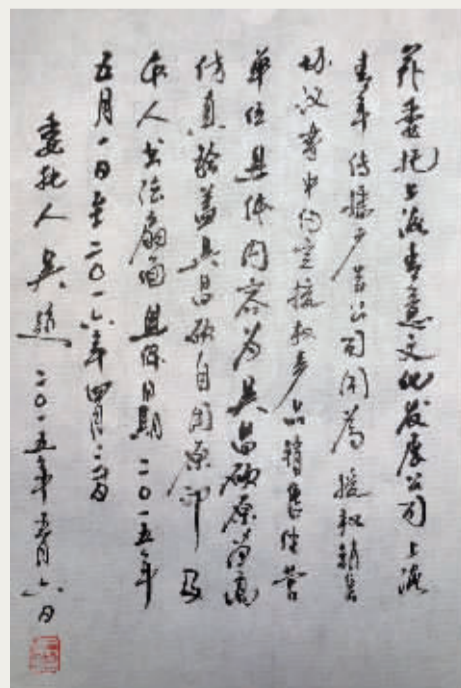 兹委托上海吉意文化发展公司上海
青年传播广告公司闵为授权销售
协议书中约定授权产品销售经营
单位具体内容为吴昌硕原作高
仿真钤盖吴昌硕自用原印及
本人书法扇面具体日期二〇一五年
五月一日至二〇一六年四月
委托人吴越二〇一五年 月六日